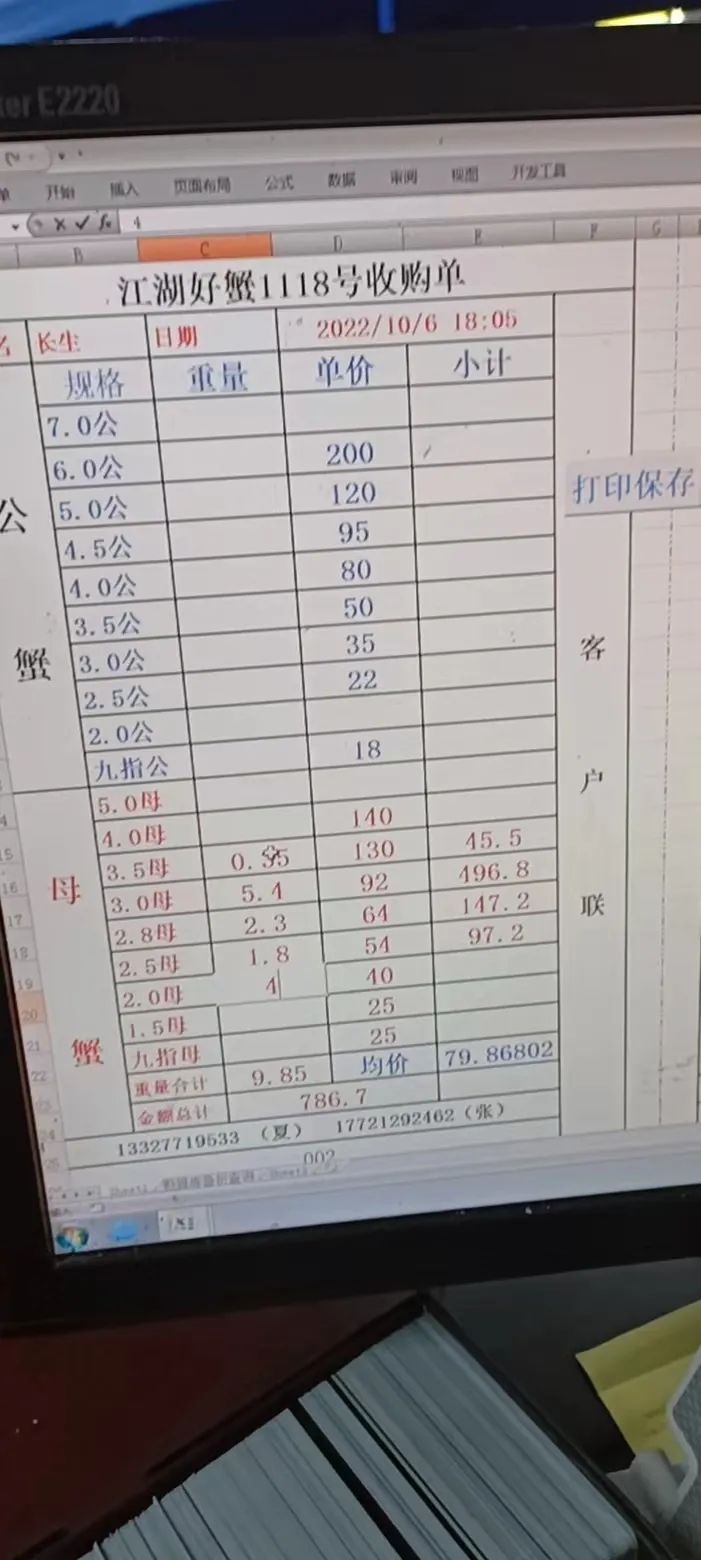 er E2220
开始 插入 页面布局 公式 数据 审阅 视图 开发工具
4
B C D E F G
江湖好蟹1118号收购单
名 长生 日期 2022/10/6 18:05
规格 重量 单价 小计
7.0公
6.0公 200
5.0公 120
4.5公 95
4.0公 80
3.5公 50
3.0公 35
2.5公 22
2.0公
九指公 18
公蟹
5.0母
4.0母 140
3.5母 0.35 130 45.5
3.0母 5.4 92 496.8
2.8母 2.3 64 147.2
2.5母 1.8 54 97.2
2.0母 4 40
1.5母 25
九指母 25
母蟹
重量合计 9.85 均价 79.86802
金额总计 786.7
13327719533（夏） 17721292462（张）
002
打印保存
客户联
15
16
17
18
19
20
21
22
23
24
25